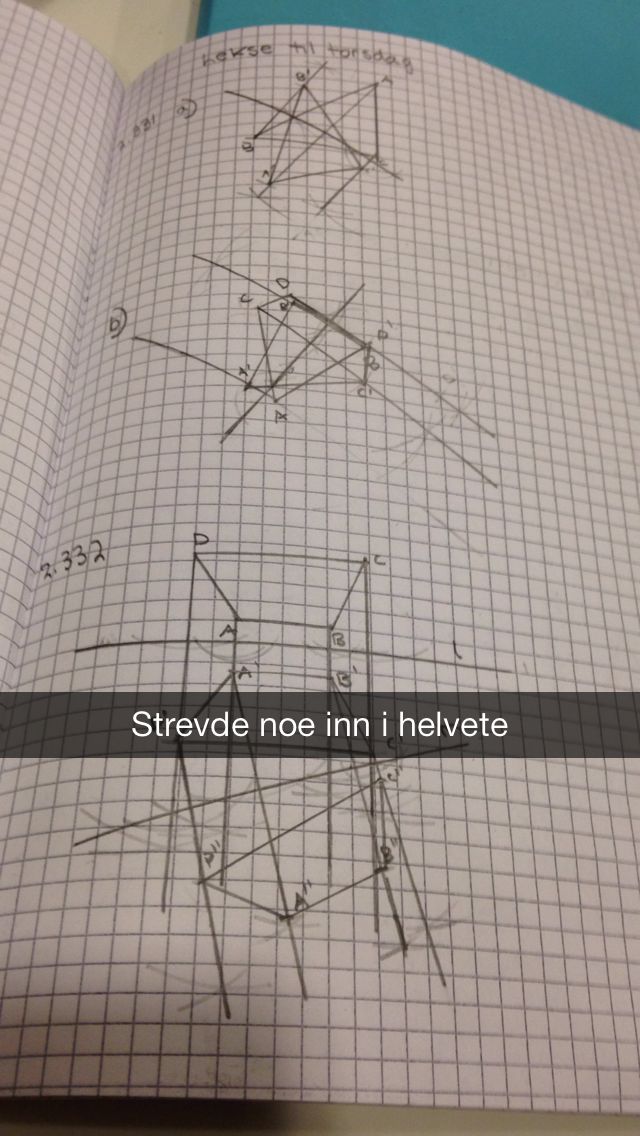 Lekse til torsdag
2.331 a)
B'
A
B
b)
D
C
D'
A'
B
C'
A
2.332
D
C
A
B
l
A'
B'
Strevde noe inn i helvete
C'
C"
D"
B"
A"